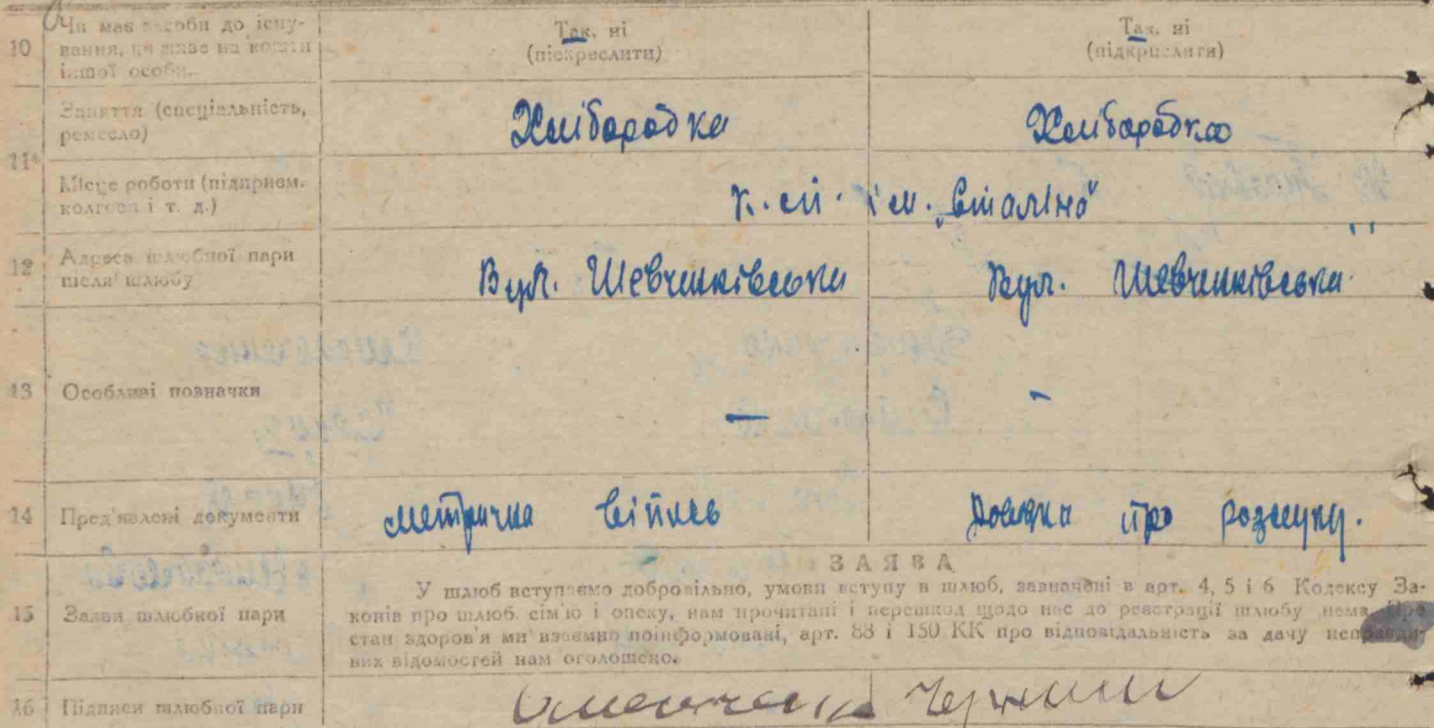 10 Чи має засоби до існу-
вання, чи живе на кошти
іншої особи.
Так, ні
(піскреслити)
Так, ні
(підкрислити)
11 Заняття (спеціальність,
ремесло)
Хліборобка
Хліборобка
Місце роботи (підприєм.
колгосп і т. д.)
к. ім. „Сталіна"
12 Адреса шлюбної пари
після шлюбу
Вул. Шевченківська
Вул. Шевченківська
13 Особливі позначки
—
-
14 Пред'явлені документи
метрична
довідка про
ЗАЯВА
15 Заява шлюбної пари
У шлюб вступаємо добровільно, умови вступу в шлюб, зазначені в арт. 4, 5 і 6 Кодексу За-
конів про шлюб, сім'ю і опеку, нам прочитані і перешкод щодо нас до реєстрації шлюбу нема. Про
стан здоров'я ми взаємно поінформовані, арт. 88 і 150 КК про відповідальність за дачу неправди-
вих відомостей нам оголошено.
16 Підписи шлюбної пари